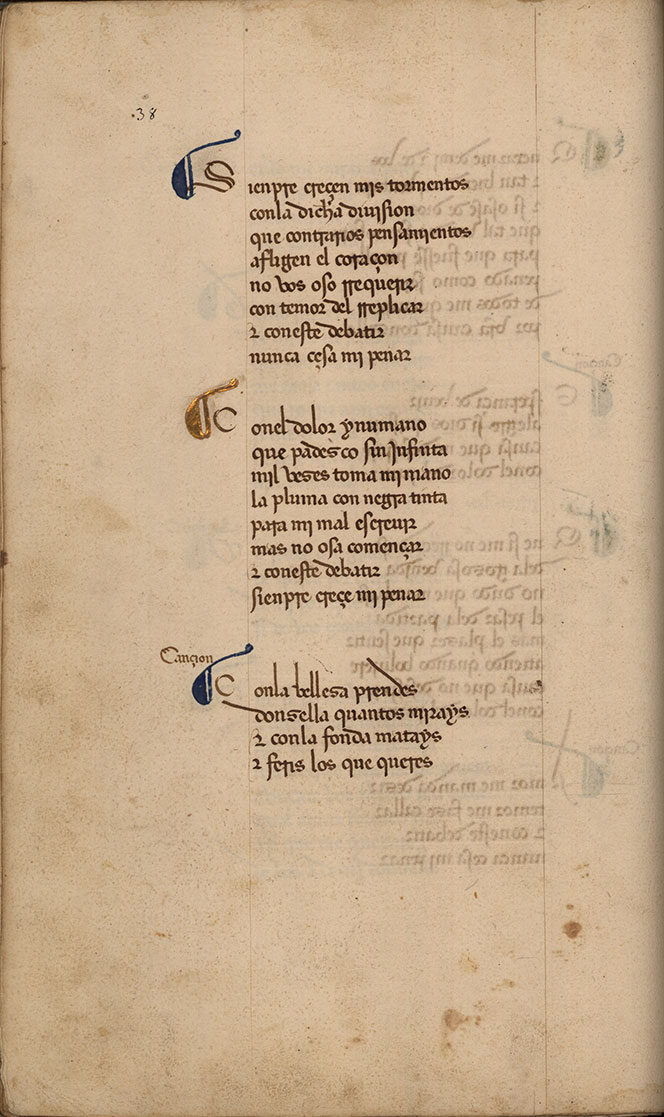 .38
Sienpre creçen mis tormentos
conla dicha diuision
que contrarios pensamientos
afligen el coraçon
no vos oso rrequerir
con temor del rreplicar
⁊ coneste debatir
nunca çesa mi penar
Conel dolor ynumano
que padesco sin infinta
mil veses toma mi mano
la pluma con negra tinta
para mi mal escreuir
mas no osa començar
⁊ coneste debatir
sienpre creçe mi penar
Cançion
Conla bellesa prendes
donsella quantos mirays
⁊ conla fonda matays
⁊ feris los que queres